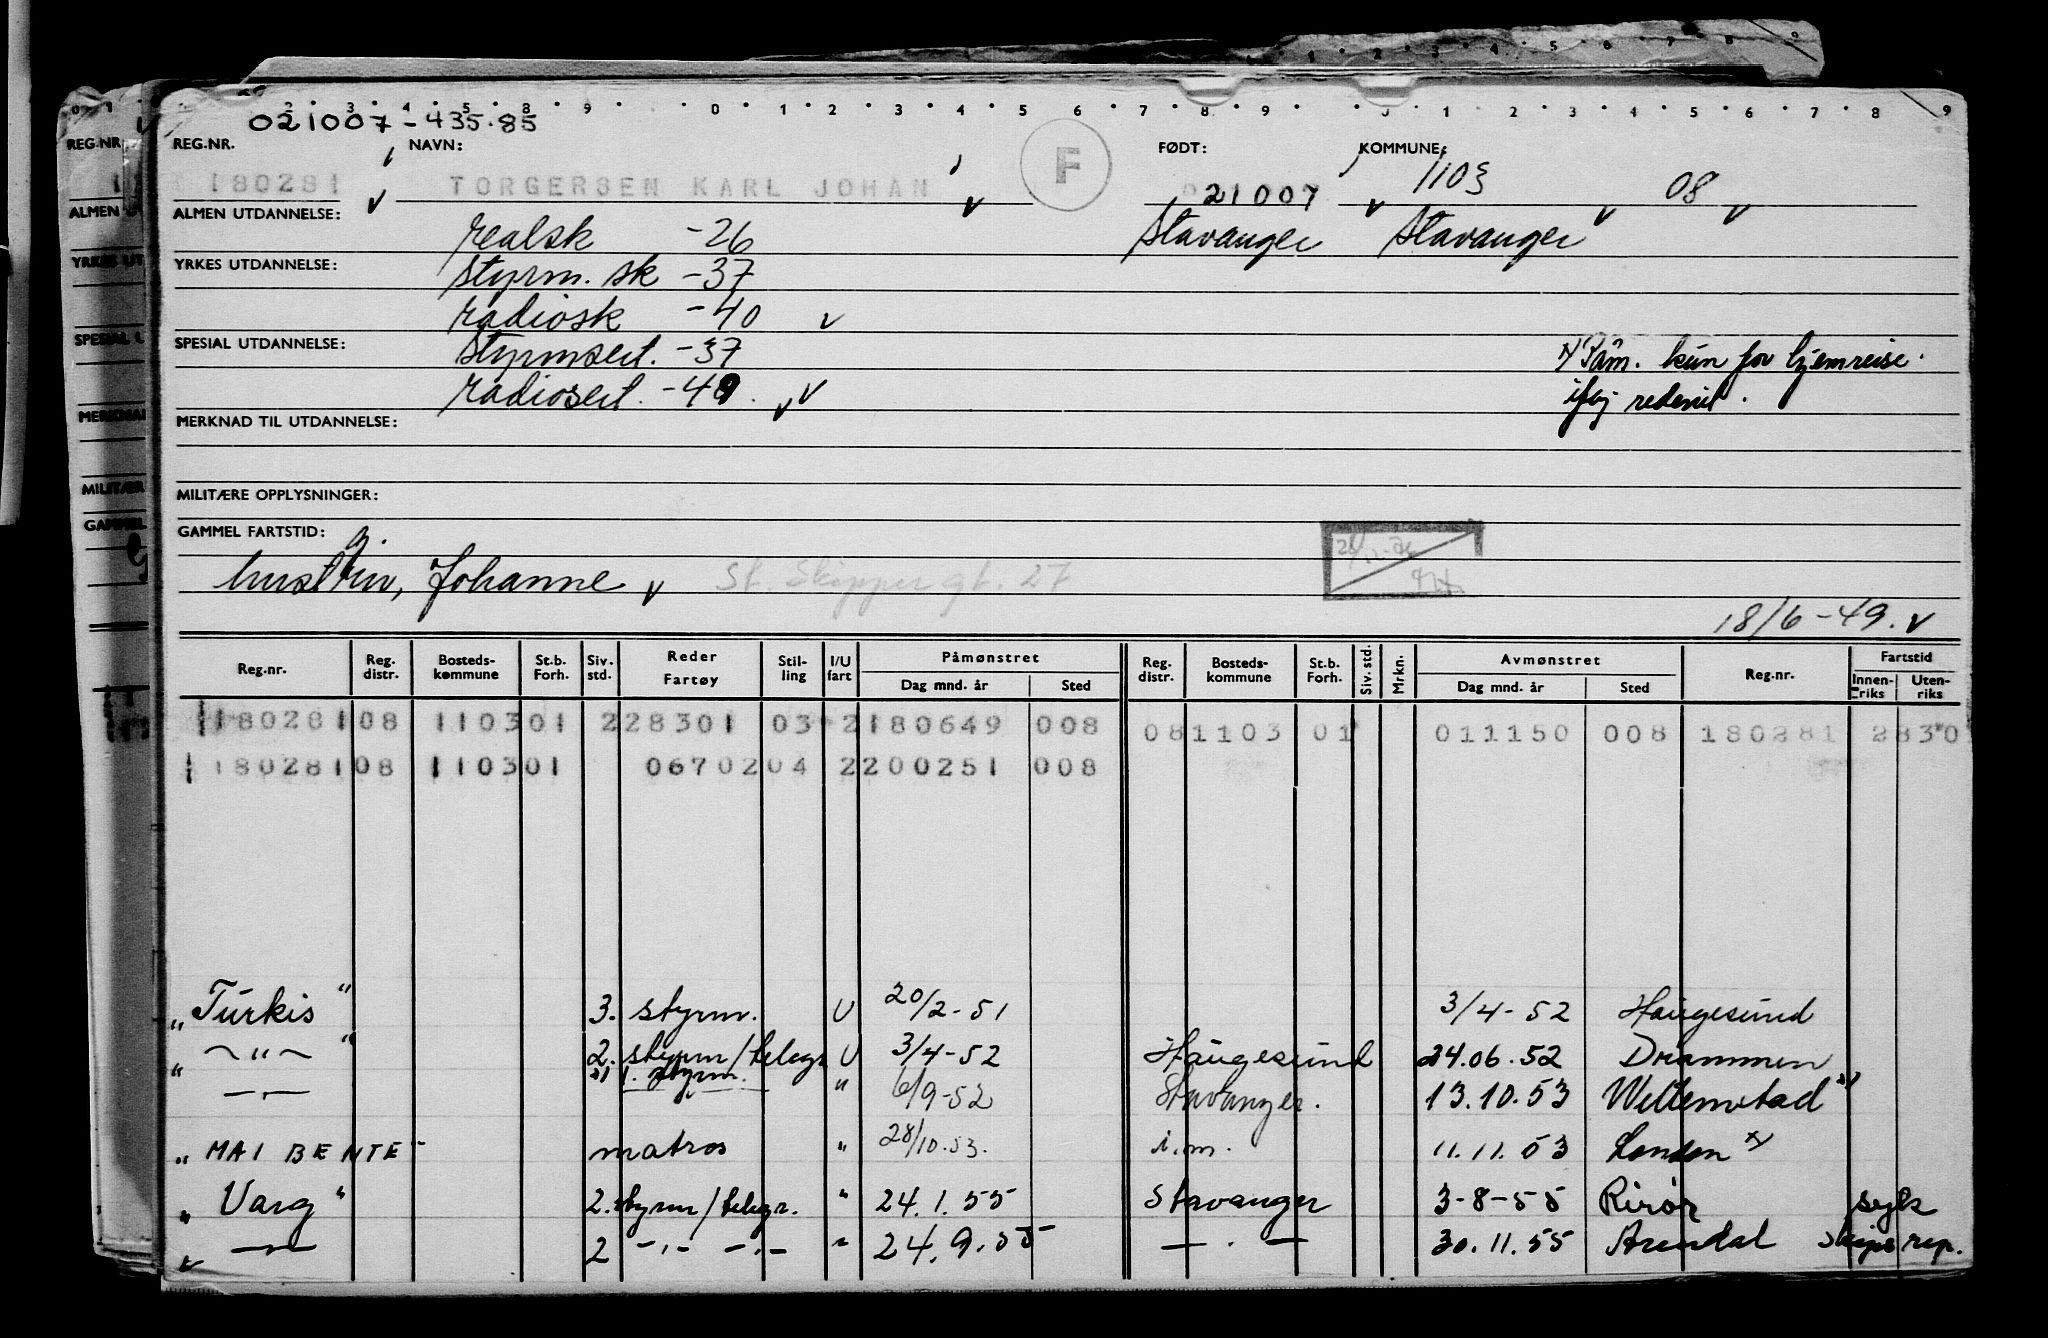 021007-435.85
REG.NR. NAVN: FØDT: KOMMUNE:
180281 TORGERSEN KARL JOHAN F 21007 1103 08
ALMEN UTDANNELSE: realsk -26 Stavanger Stavanger
YRKES UTDANNELSE: styrm. sk -37
radiosk -40
SPESIAL UTDANNELSE: styrmsert. -37 x) Påm. kun for hjemreise.
radiosert. -40 iflg rederiet.
MERKNAD TIL UTDANNELSE:
MILITÆRE OPPLYSNINGER:
GAMMEL FARTSTID:
hustru, Johanne St. Skipper gt. 27
18/6-49.
Reg.nr. Reg. distr. Bosteds- kommune St.b. Forh. Siv. std. Reder Fartøy Stil- ling I/U fart Påmønstret Dag mnd. år Sted Reg. distr. Bosteds- kommune St.b. Forh. Siv. std. Mrkn. Avmønstret Dag mnd. år Sted Reg.nr. Fartstid Innen- riks Uten- riks
180281 08 1103 01 2 28301 03 2 180649 008 08 1103 01 011150 008 180281 283 0
180281 08 1103 01 06702 04 2 200251 008
"Turkis" 3. styrm. U 20/2-51 3/4-52 Haugesund
" —"— " 2. styrm/telegr U 3/4-52 Haugesund 24.06.52 Drammen
—.— 1. styrm. " 6/9-52 Stavanger. 13.10.53 Willemstad
"MAI BENTE" matros " 28/10.53. i.m. 11.11.53 London x)
"Varg" 2. styrm/telegr. " 24.1.55 Stavanger 3-8-55 Risør syk
" —"— 2 —.— —.— " 24.9.55 — . — 30.11.55 Arendal skips rep.